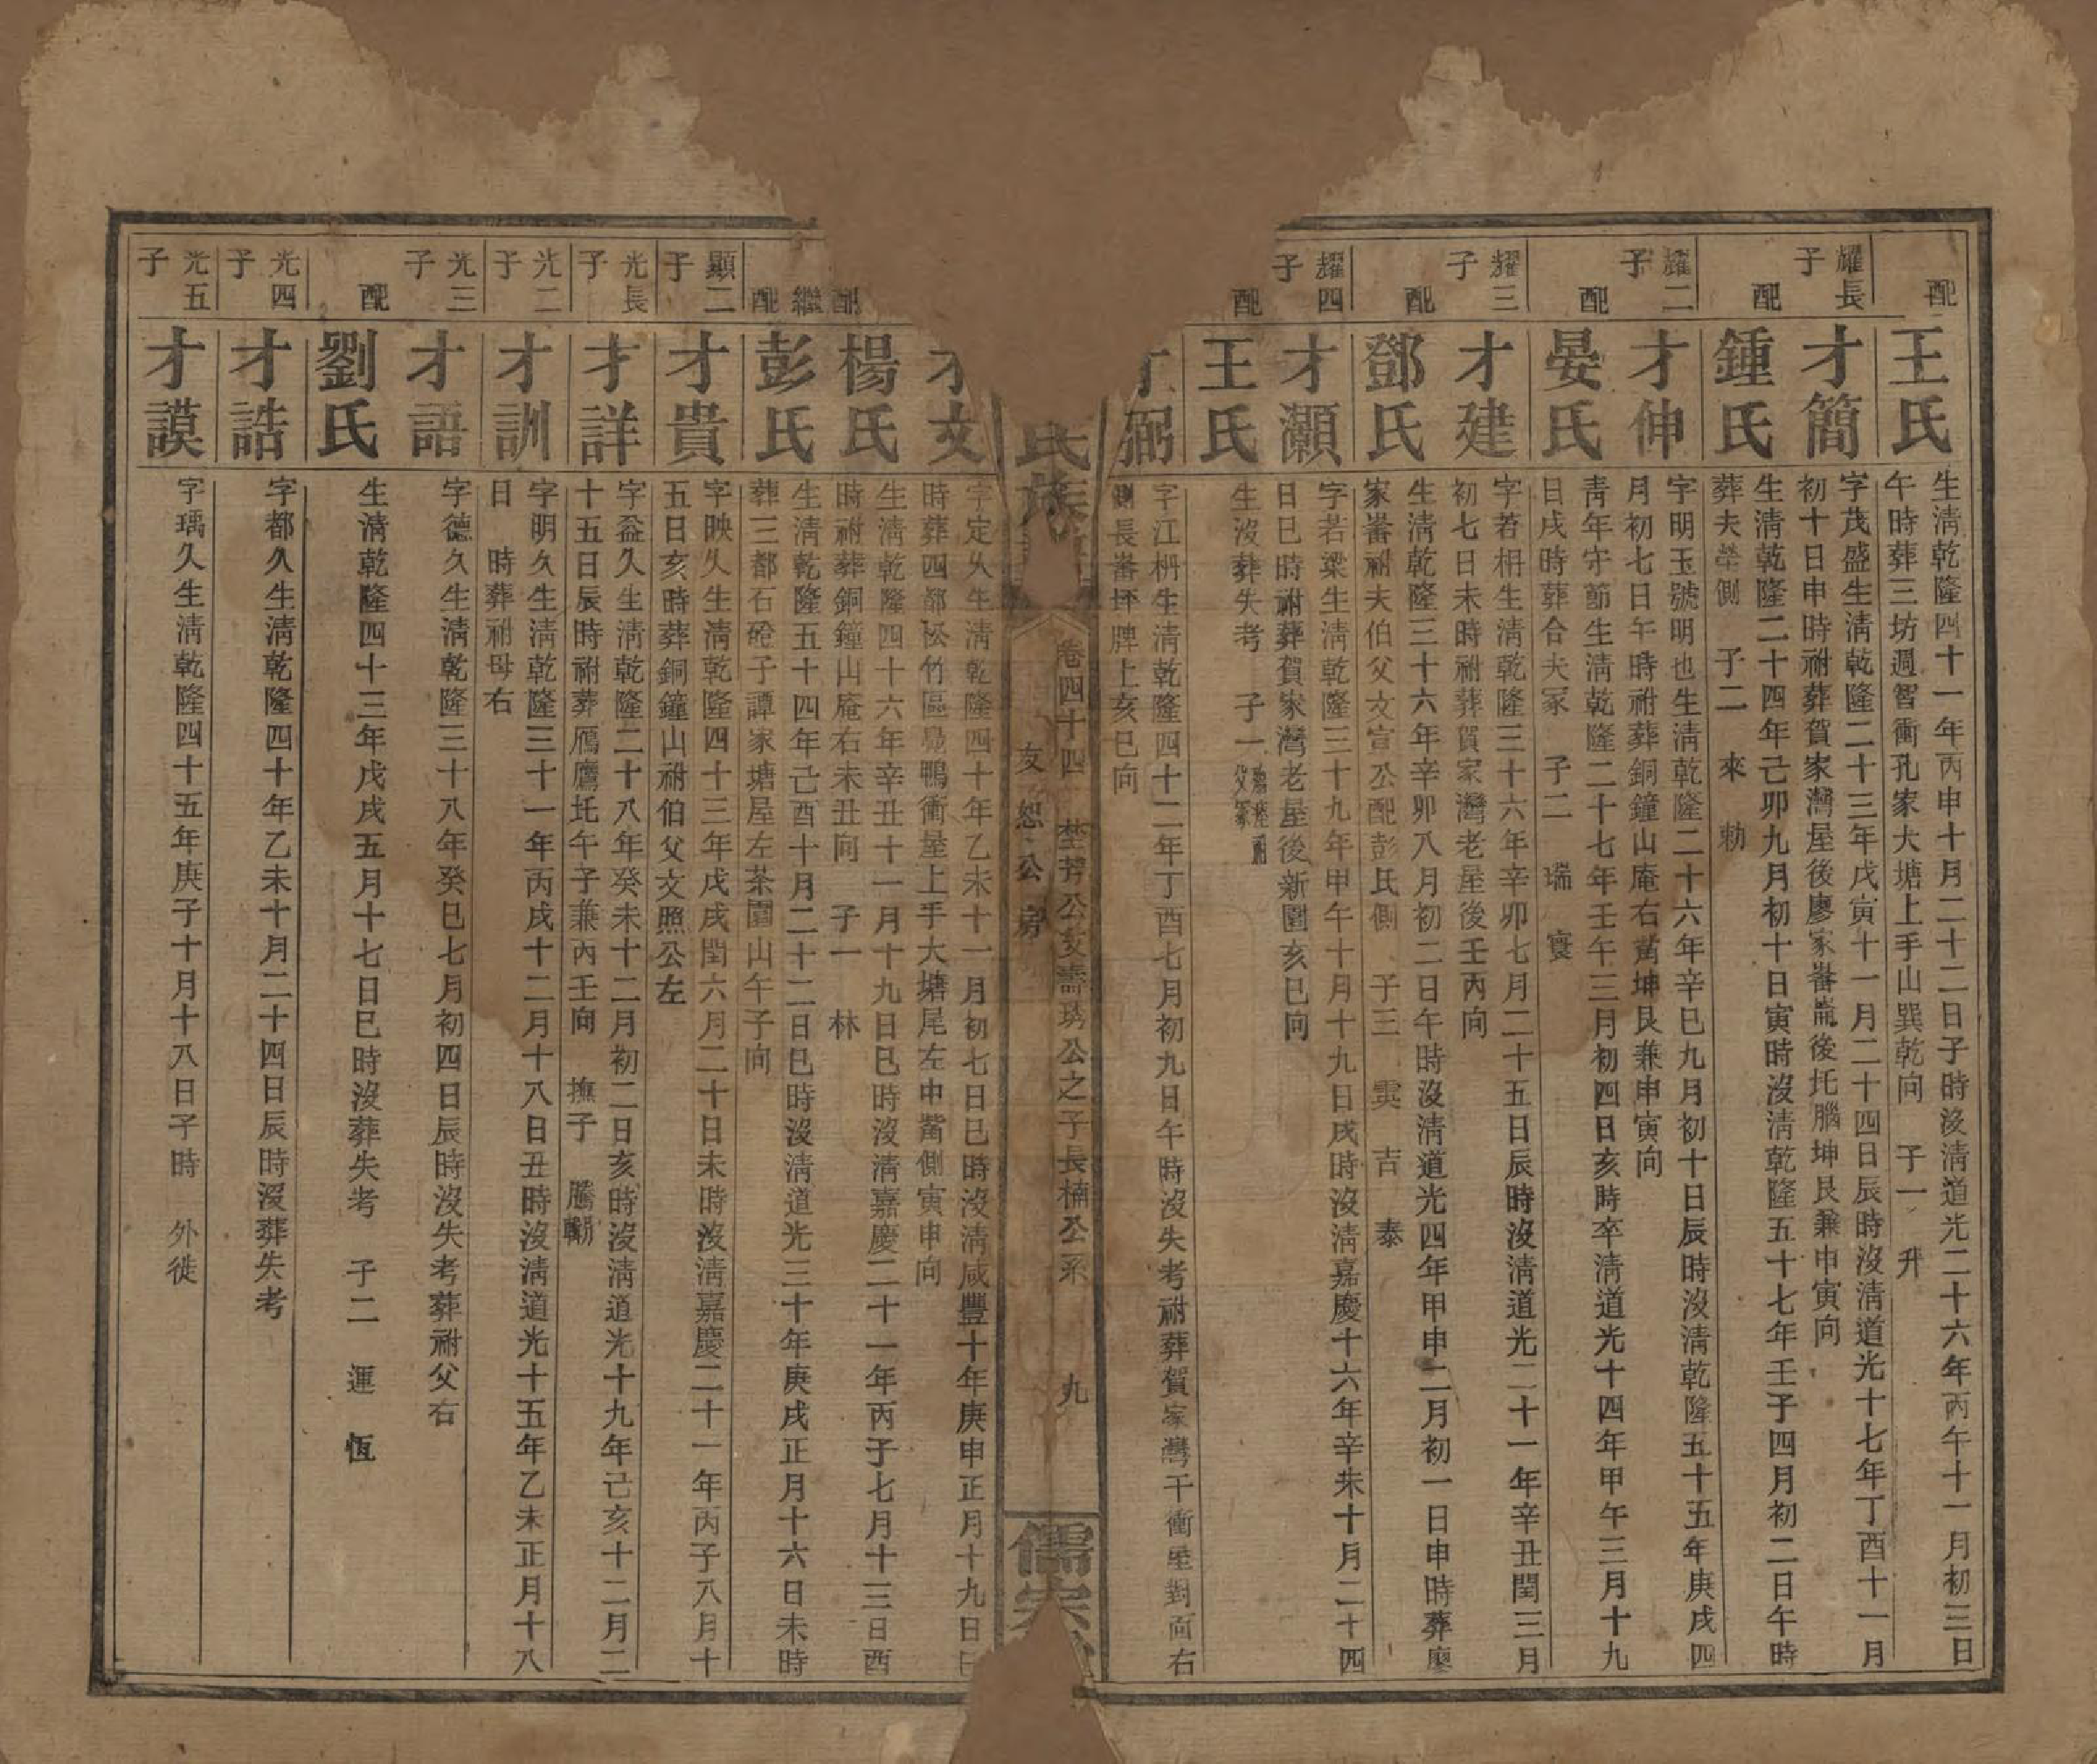 配
王氏
生淸乾隆四十一年丙申十月二十二日子時沒淸道光二十六年丙午十一月初三日
午時葬三坊週智衝孔家大塘上手山巽乾向　子一　升
耀長子
才簡
字茂盛生淸乾隆二十三年戊寅十一月二十四日辰時沒淸道光十七年丁酉十一月
初十日申時祔葬賀家灣屋後廖家蕃崙後圫腦坤艮兼申寅向
配
鍾氏
生淸乾隆二十四年己卯九月初十日寅時沒淸乾隆五十七年壬子四月初二日午時
葬夫塋側　子二　來　勑
耀二子
才伸
字明玉號明也生淸乾隆二十六年辛巳九月初十日辰時沒淸乾隆五十五年庚戌四
月初七日午時祔葬銅鐘山庵右嵩坤艮兼申寅向
配
晏氏
靑年守節生淸乾隆二十七年壬午三月初四日亥時卒淸道光十四年甲午三月十九
日戌時葬合夫冢　子二　瑞　寔
耀三子
才建
字若枏生淸乾隆三十六年辛卯七月二十五日辰時沒淸道光二十一年辛丑閏三月
初七日未時祔葬賀家灣老屋後壬丙向
配
鄧氏
生淸乾隆三十六年辛卯八月初二日午時沒淸道光四年甲申二月初一日申時葬廖
家蕃祔夫伯父文宣公配彭氏側　子三　雲　吉　泰
耀四子
才灝
字若梁生淸乾隆三十九年甲午十月十九日戌時沒淸嘉慶十六年辛未十月二十四
日巳時祔葬賀家灣老屋後新園亥巳向
配
王氏
生沒葬失考　子一
弼
字江枬生淸乾隆四十二年丁酉七月初九日午時沒失考祔葬賀家灣干衝屋對面右
側長蕃坪脾上亥巳向
氏族
卷四十四　埜芳公支壽琇公之子長楠公系　九
友恕公房
儒宗
才文
字定久生淸乾隆四十年乙未十一月初七日巳時沒淸咸豐十年庚申正月十九日
時葬四都松竹區㬅鴨衝屋上手大塘尾左申嵩側寅申向
配
楊氏
生淸乾隆四十六年辛丑十一月十九日巳時沒淸嘉慶二十一年丙子七月十三日酉
時祔葬銅鐘山庵右未丑向　子一　林
繼配
彭氏
生淸乾隆五十四年己酉十月二十二日巳時沒淸道光三十年庚戌正月十六日未時
葬三都石磴子譚家塘屋左茶園山午子向
顯二子
才貴
字映久生淸乾隆四十三年戊戌閏六月二十日未時沒淸嘉慶二十一年丙子八月十
五日亥時葬銅鐘山祔伯父文照公左
光長子
才詳
字益久生淸乾隆二十八年癸未十二月初二日亥時沒淸道光十九年己亥十二月二
十五日辰時祔葬鴈鷹圫午子兼丙壬向　撫子　騰
光二子
才訓
字明久生淸乾隆三十一年丙戌十二月十八日丑時沒淸道光十五年乙未正月十八
日　時葬祔母右
光三子
才語
字德久生淸乾隆三十八年癸巳七月初四日辰時沒失考葬祔父右
配
劉氏
生淸乾隆四十三年戊戌五月十七日巳時沒葬失考　子二　運　恆
光四子
才誥
字都久生淸乾隆四十年乙未十月二十四日辰時沒葬失考
光五子
才謨
字瑀久生淸乾隆四十五年庚子十月十八日子時　外徙